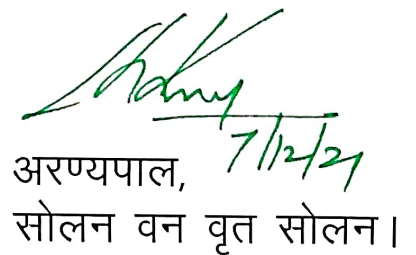 7/12/21
अरण्यपाल,
सोलन वन वृत सोलन।